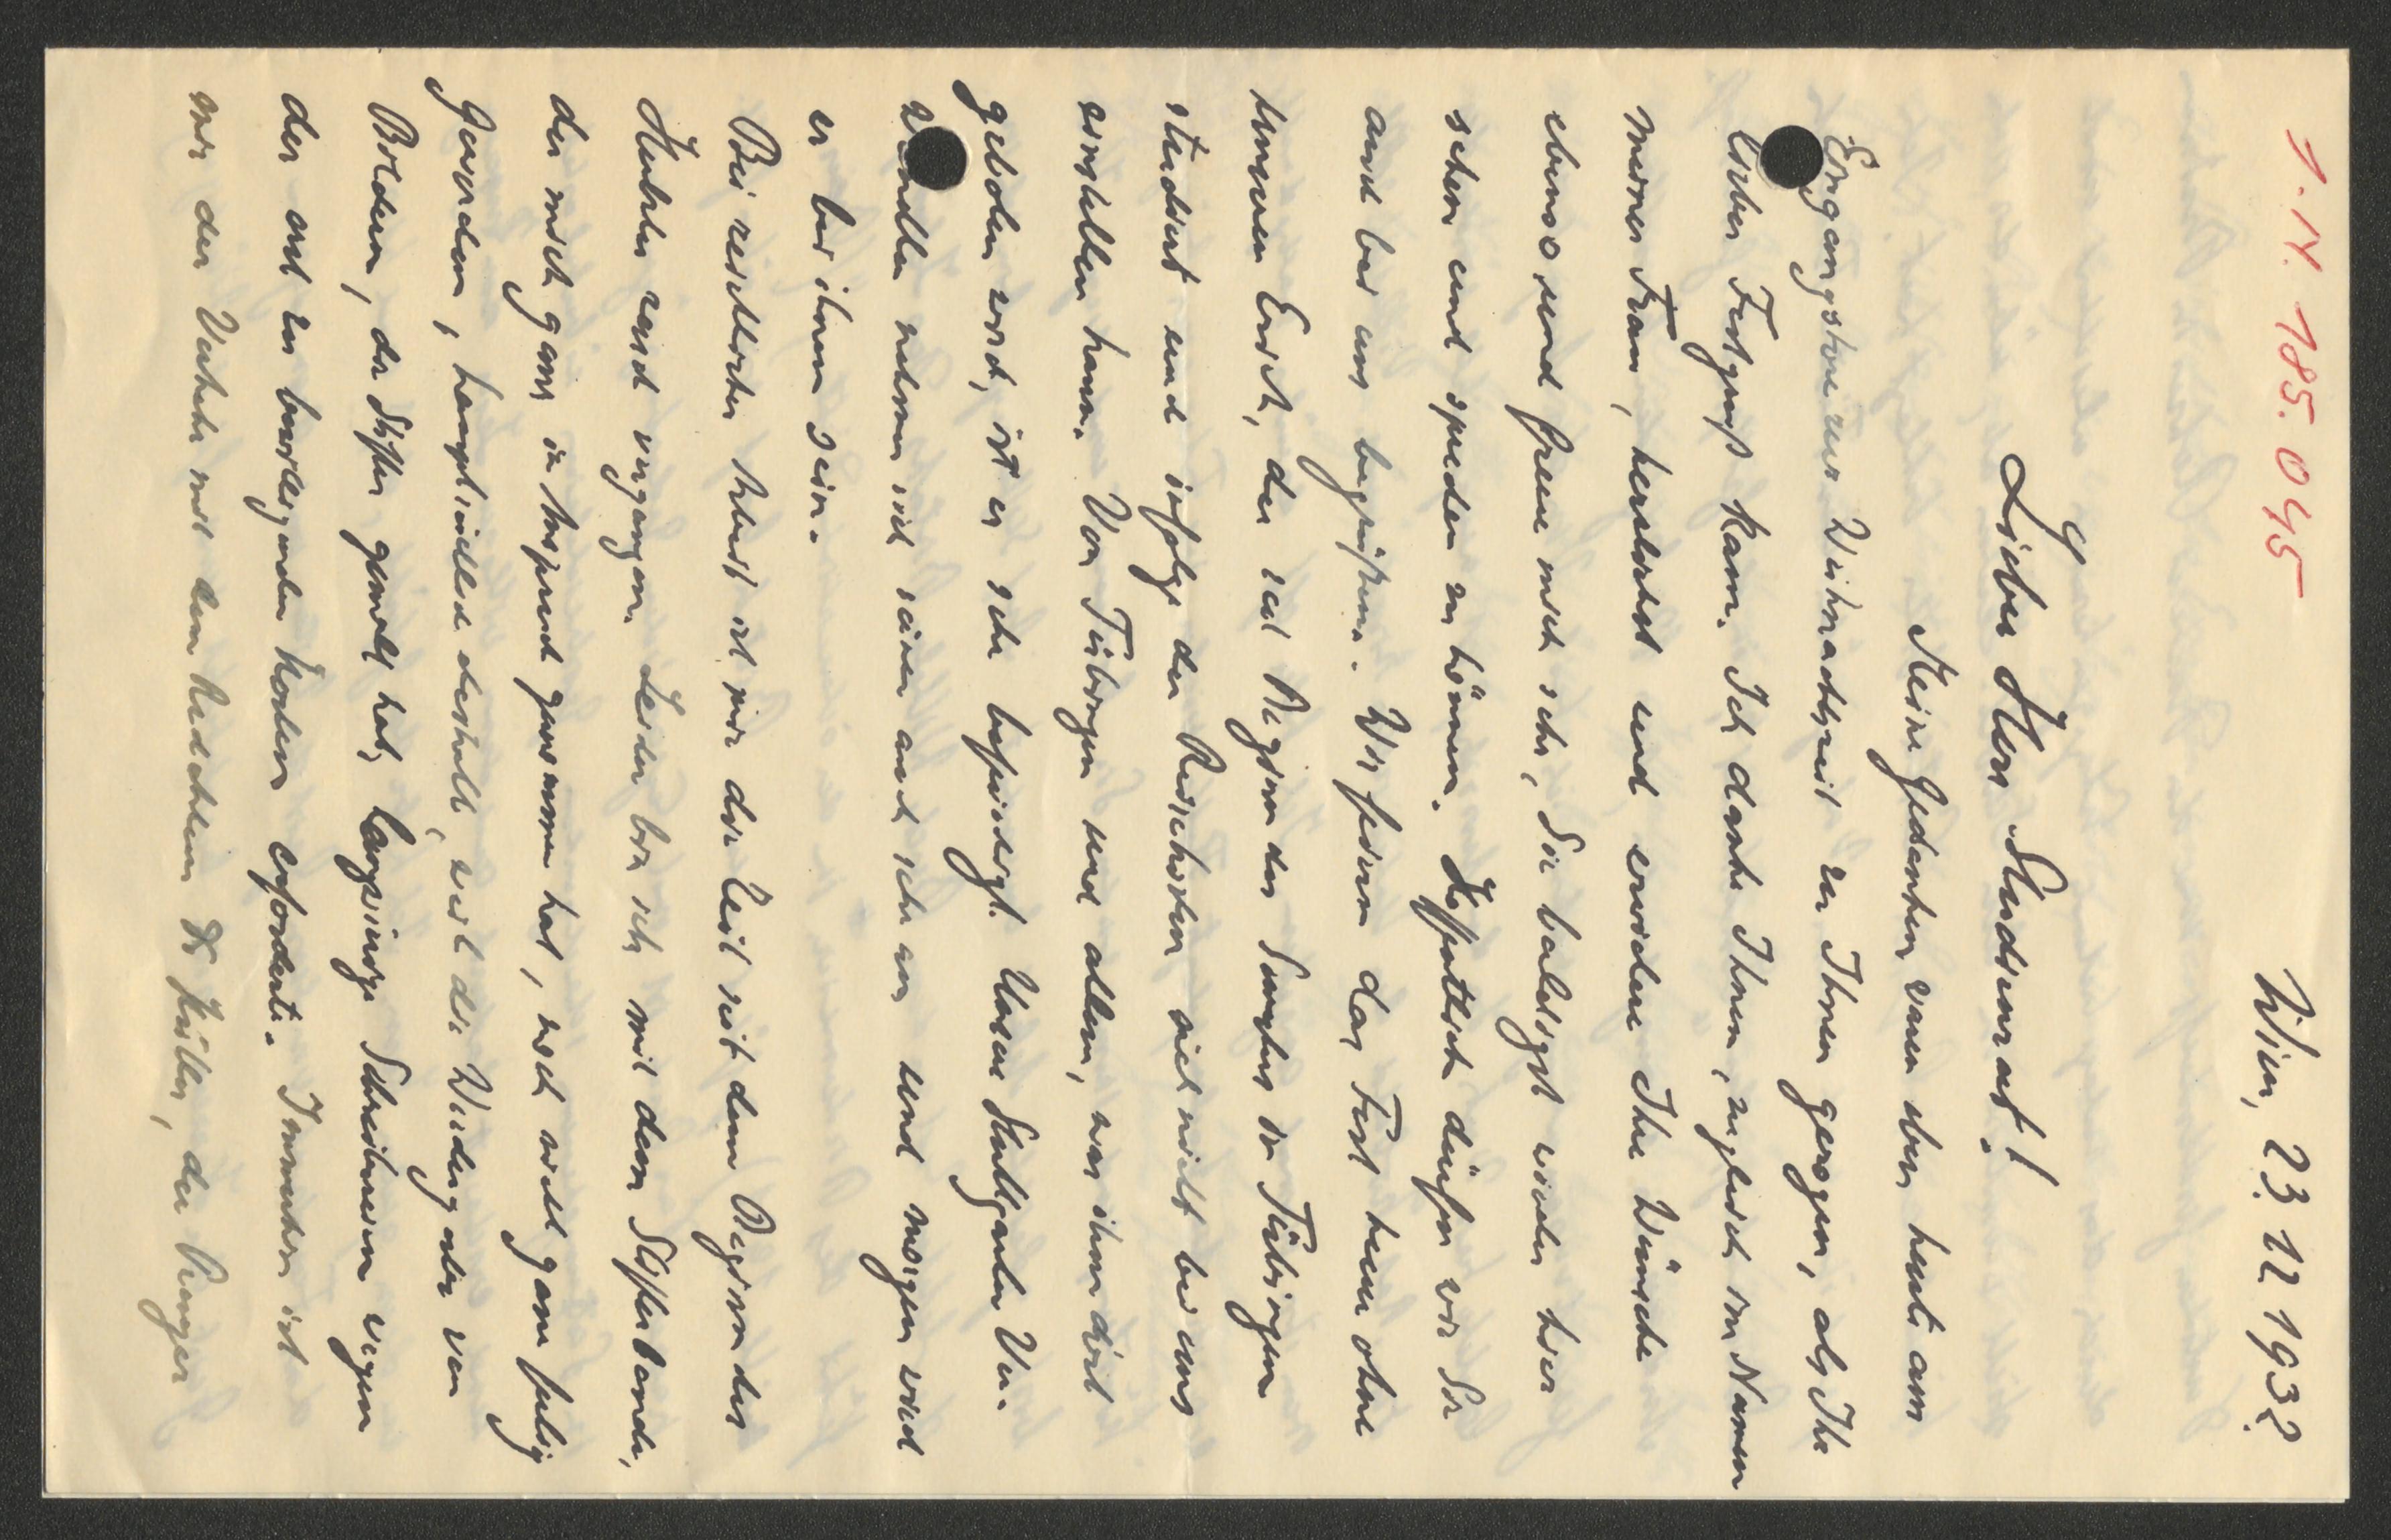 1. N. 185.045
Wien, 23. 12 1932
Lieber Herr Studienrat!
Meine Gedanken waren eben heute am
Eingangstore zur Weihnachtszeit zu Ihnen gezogen, als Ihr
lieber Festgruß kam. Ich danke Ihnen, zugleich im Namen
meiner Frau, herzlichst und erwidere Ihre Wünsche
ebenso und freue mich sehr, Sie baldigst wieder hier
sehen und sprechen zu können. Hoffentlich dürfen wir Sie
auch bei uns begrüßen. Wir feiern das Fest heuer ohne
unseren Erich, der seit Beginn des Semesters in Tübingen
studiert und infolge der Reisekosten sich nicht bei uns
einstellen kann. Von Tübingen und allem, was ihm dort
geboten wird, ist er sehr befriedigt. Unsere Stuttgarter Ver-
wandten nehmen sich seiner auch sehr an und morgen wird
er bei ihnen sein.
Bei reichlicher Arbeit ist mir die Zeit seit dem Beginn des
Herbstes rasch vergangen. Leider bin ich mit dem Stifterbande,
der mich ganz in Anspruch genommen hat, noch nicht ganz fertig
geworden, hauptsächlich deshalb, weil die Wiedergabe von
Bildern, die Stifter gemalt hat, langwierige Schreibereien wegen
der erst zu bewilligenden Kosten erforderte. Immerhin ist
mir der Verkehr mit dem Redakteur Dr Hüller, der Prager